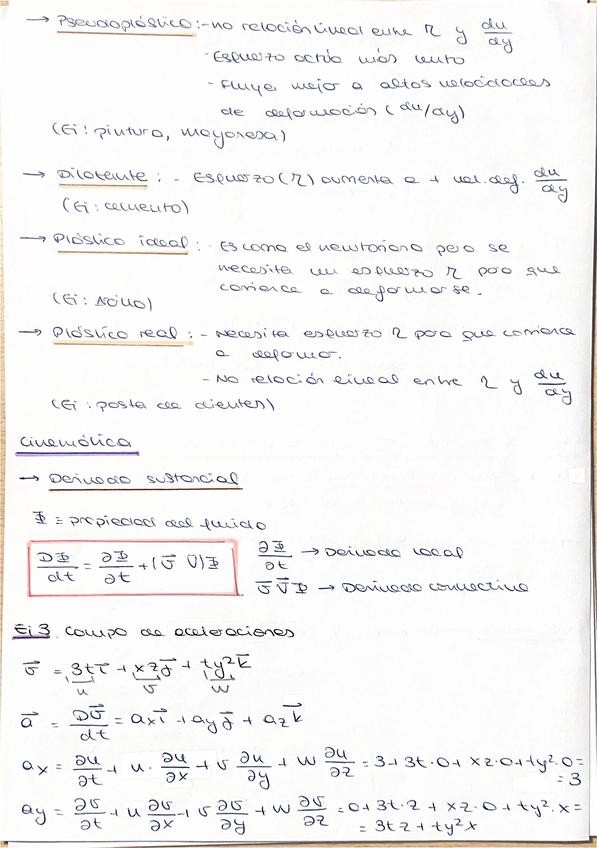 → Pseudoplástico: - no relación lineal entre η y du/dy
- Esfuerzo actúa más lento
- Fluye mejor a altas velocidades
de deformación (du/dy)
(Ej: pintura, mayonesa)
→ Dilatante: - Esfuerzo (η) aumenta a + vel. def. du/dy
(Ej: cemento)
→ Plástico ideal: - Es como el newtoniano pero se
necesita un esfuerzo η para que
comience a deformarse.
(Ej:
→ Plástico real: - Necesita esfuerzo η para que comience
a deformar.
- No relación lineal entre η y du/dy
(Ej: pasta de dientes)
Cinemática
→ Derivada sustancial
Φ ≡ propiedad del fluido
DΦ/dt = ∂Φ/∂t + (v⃗ ∇)Φ
∂Φ/∂t → Derivada local
v⃗ ∇⃗ Φ → Derivada convectiva
Ej 3. Campo de aceleraciones
v⃗ = 3t i⃗ + xz j⃗ + ty² k⃗
u v w
a⃗ = Dv⃗/dt = ax i⃗ + ay j⃗ + az k⃗
ax = ∂u/∂t + u · ∂u/∂x + v ∂u/∂y + w ∂u/∂z = 3 + 3t·0 + xz·0 + ty²·0 =
= 3
ay = ∂v/∂t + u ∂v/∂x + v ∂v/∂y + w ∂v/∂z = 0 + 3t·z + xz·0 + ty²·x =
= 3tz + ty²x